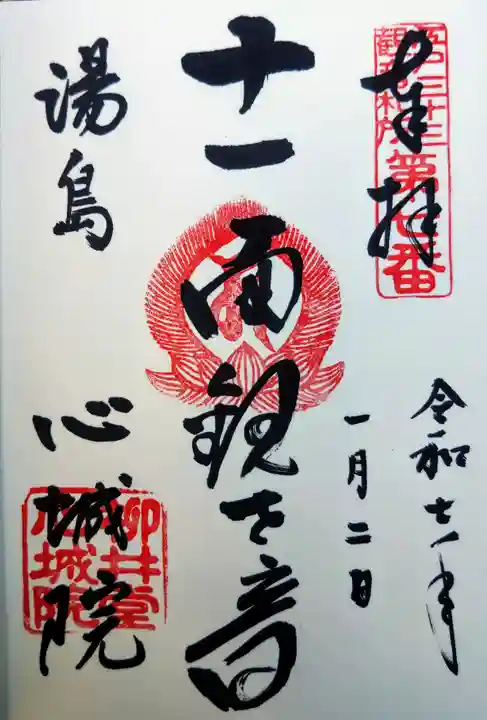 奉拝
江戸三十三
観音札所
第七番
令和七年
一月二日
十一面観世音
湯島
心城院
柳井堂
心城院